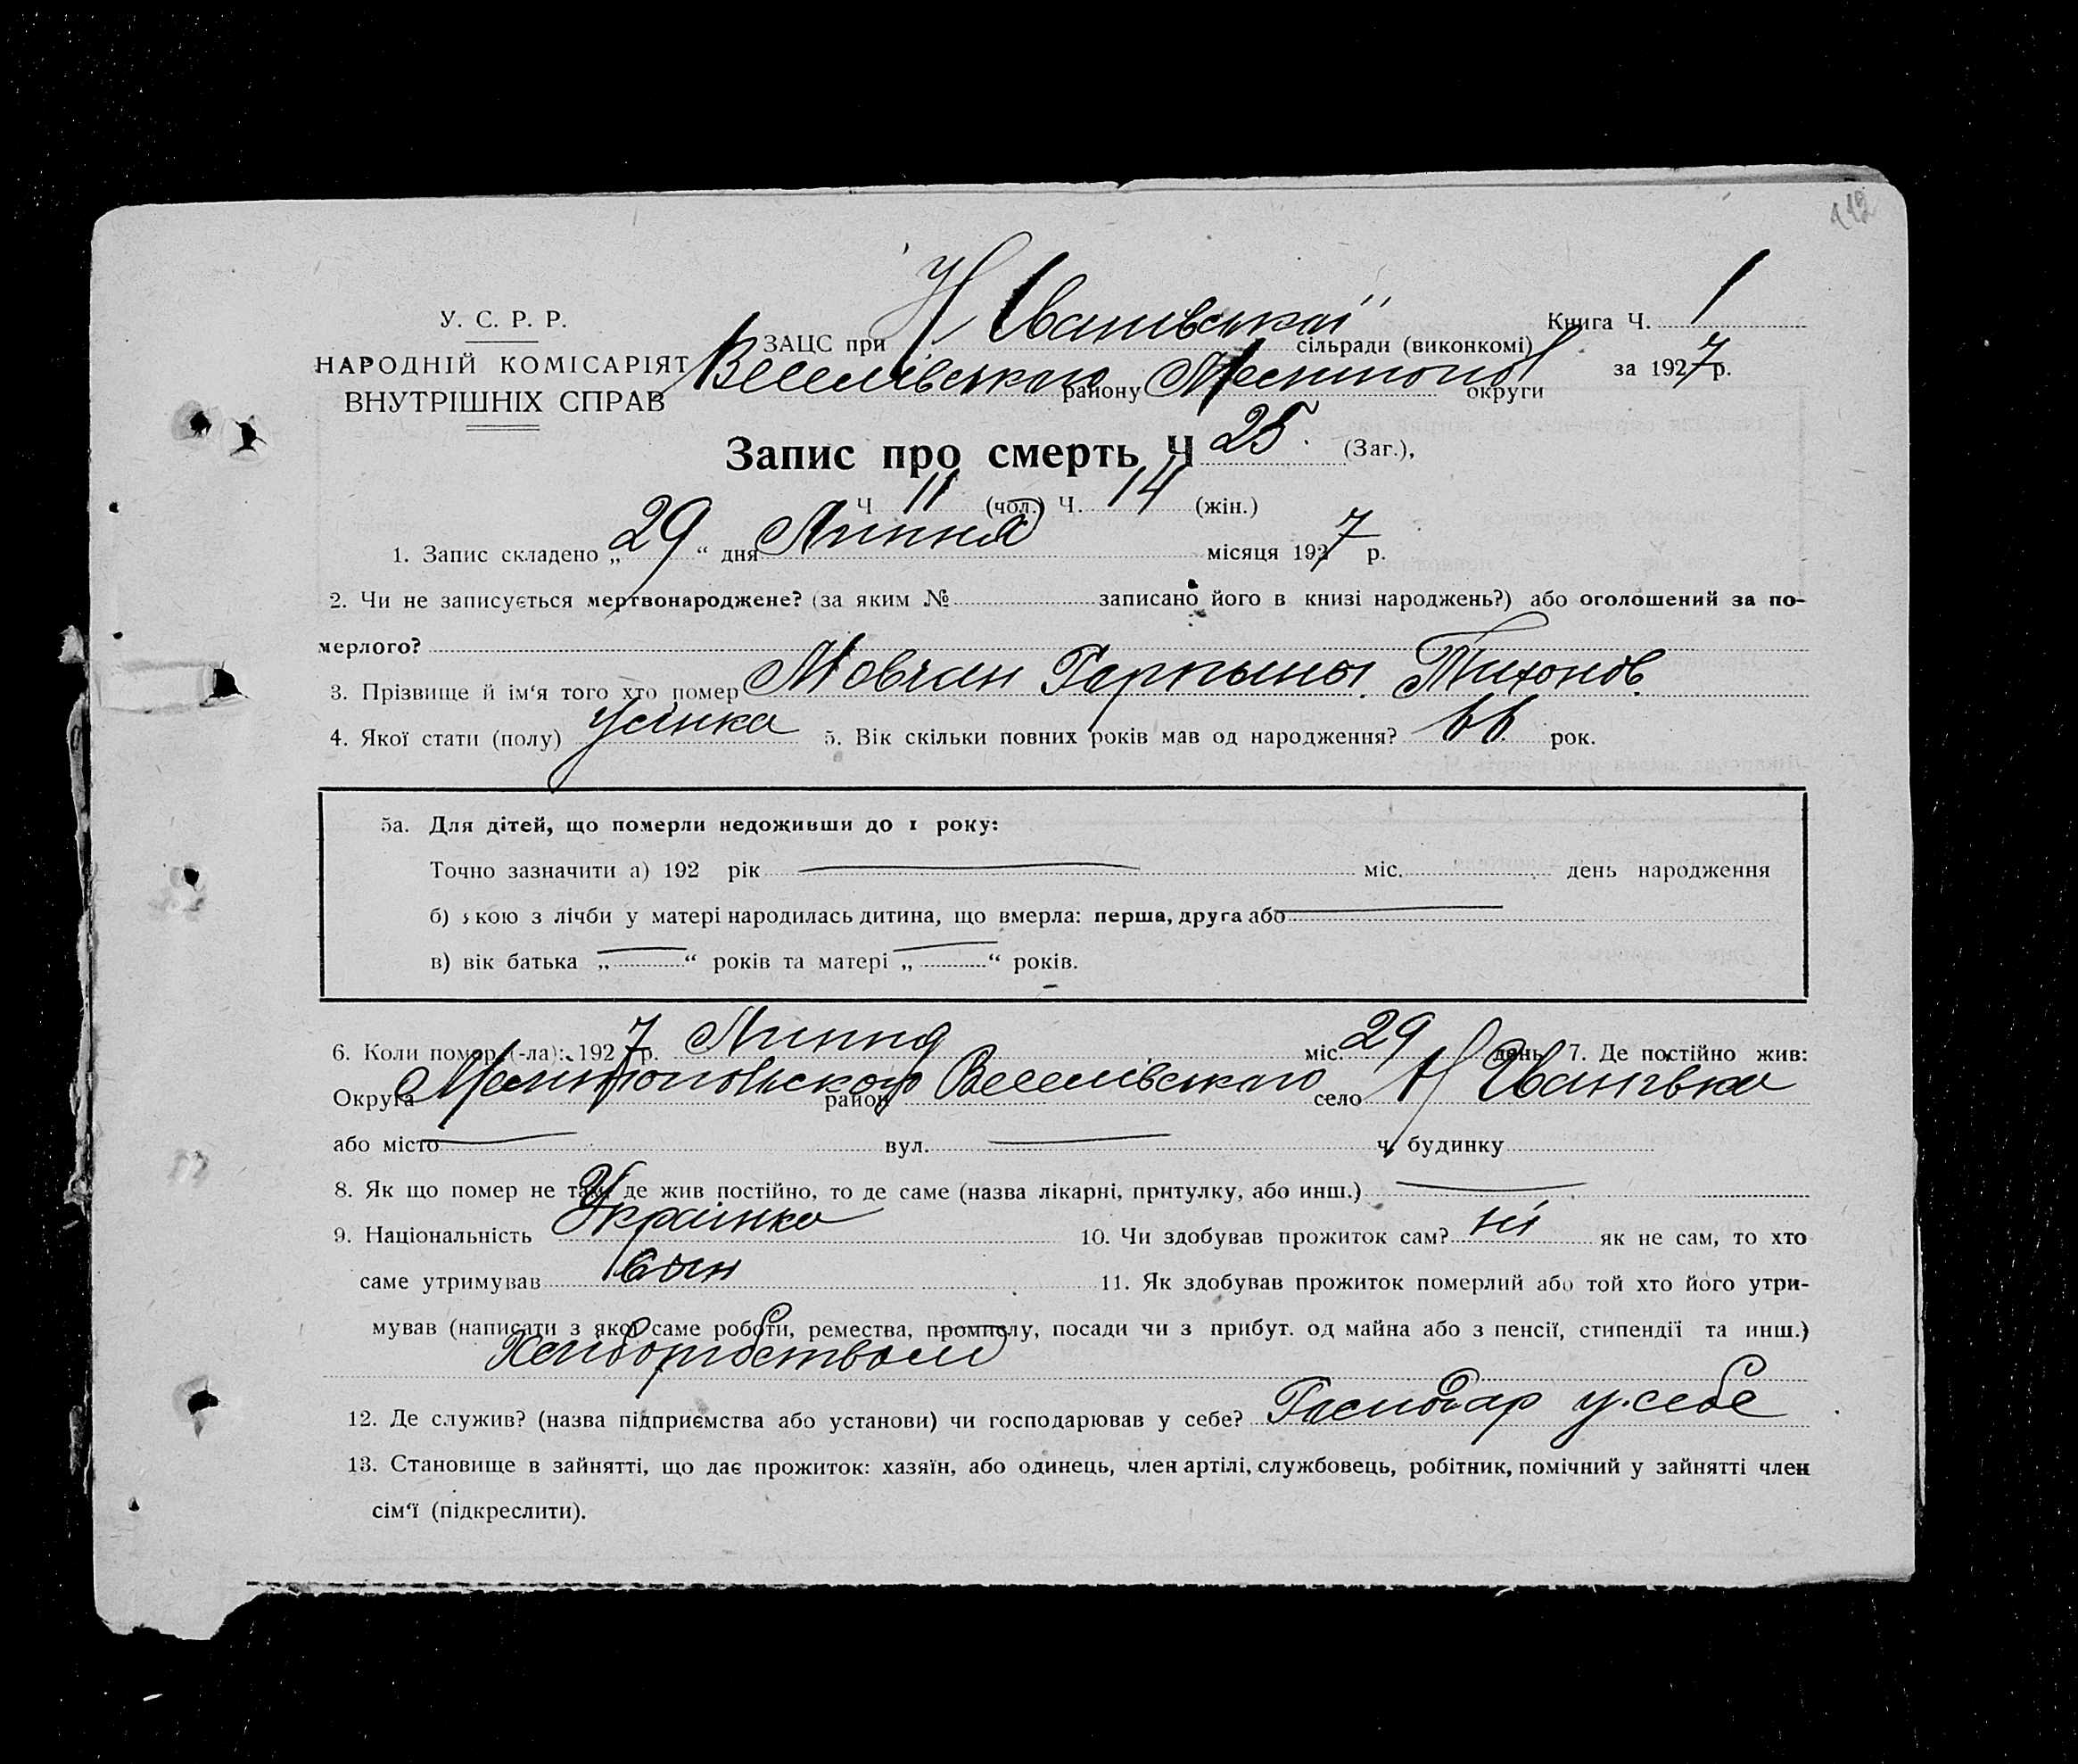 112
У. С. Р. Р.
НАРОДНІЙ КОМІСАРІЯТ
ВНУТРІШНІХ СПРАВ
ЗАЦС при Н Іванівській сільради (виконкомі)
Веселівського району Мелитопол округи
Книга Ч. 1
за 1927 р.
Запис про смерть Ч 25. (Заг.),
Ч 11 (чол.) Ч. 14 (жін.)
1. Запис складено „29“ дня Липня місяця 1927 р.
2. Чи не записується мертвонароджене? (за яким № записано його в книзі народжень?) або оголошений за по-
мерлого?
3. Прізвище й ім‘я того хто помер Мовчан Горпыны Тихонов.
4. Якої стати (полу) жінка 5. Вік скільки повних років мав од народження? 66 рок.
5а. Для дітей, що померли недоживши до 1 року:
Точно зазначити а) 192 рік міс. день народження
б) якою з лічби у матері народилась дитина, що вмерла: перша, друга або
в) вік батька „ “ років та матері „ “ років.
6. Коли помер (-ла): 1927 р. Липня міс. 29 день 7. Де постійно жив:
Округа Мелитопольского район Веселівського село Н Іванівка
або місто вул. ч. будинку
8. Як що помер не там, де жив постійно, то де саме (назва лікарні, притулку, або инш.)
9. Національність Українка 10. Чи здобував прожиток сам? ні як не сам, то хто
саме утримував син 11. Як здобував прожиток померлий або той хто його утри-
мував (написати з якої саме роботи, ремества, промислу, посади чи з прибут. од майна або з пенсії, стипендії та инш.)
Хліборобством
12. Де служив? (назва підприємства або установи) чи господарював у себе? Господар у себе
13. Становище в зайнятті, що дає прожиток: хазяїн, або одинець, член артілі, службовець, робітник, помічний у зайнятті член
сім‘ї (підкреслити).